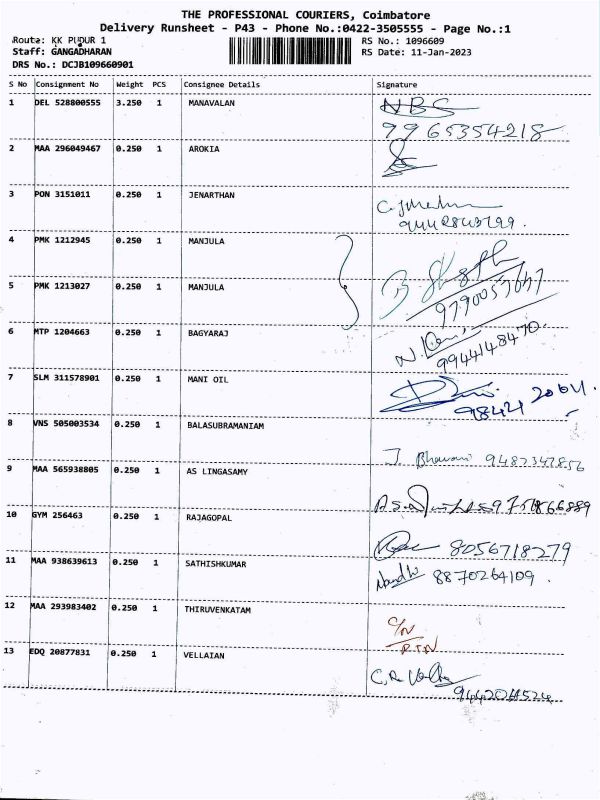 THE PROFESSIONAL COURIERS, Coimbatore
Delivery Runsheet - P43 - Phone No.:0422-3505555 - Page No.:1
Route: KK PUDUR 1
RS No.: 1096609
Staff: GANGADHARAN
RS Date: 11-Jan-2023
DRS No.: DCJB109660901
S No Consignment No Weight PCS Consignee Details Signature
1 DEL 528800555 3.250 1 MANAVALAN NBS
9965354218
2 MAA 296049467 0.250 1 AROKIA
3 PON 3151011 0.250 1 JENARTHAN
4 PMK 1212945 0.250 1 MANJULA
5 PMK 1213027 0.250 1 MANJULA
6 MTP 1204663 0.250 1 BAGYARAJ
9944148470
7 SLM 311578901 0.250 1 MANI OIL
98424 20064
8 VNS 505003534 0.250 1 BALASUBRAMANIAM
J Bhavani 9487347856
9 MAA 565938805 0.250 1 AS LINGASAMY
10 GYM 256463 0.250 1 RAJAGOPAL
8056718279
11 MAA 938639613 0.250 1 SATHISHKUMAR
Nandhi 8870264109.
12 MAA 293983402 0.250 1 THIRUVENKATAM
C/N
RTN
13 EDQ 20877831 0.250 1 VELLAIAN